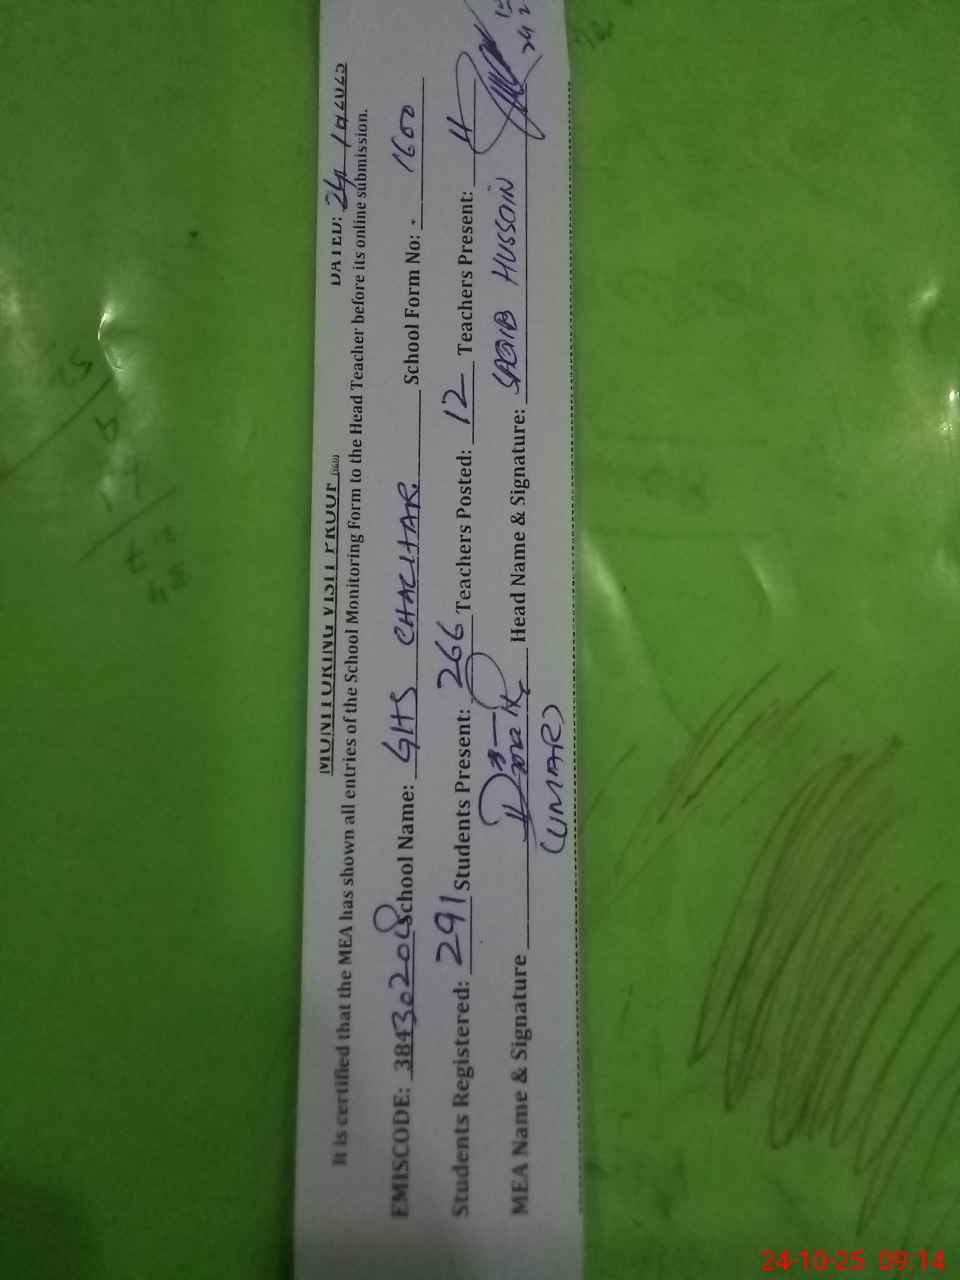 MONITORING VISIT PROOF
DATED: 24/10/2025
It is certified that the MEA has shown all entries of the School Monitoring Form to the Head Teacher before its online submission.
EMISCODE: 38430208 School Name: GHS CHACHAR School Form No: 1600
Students Registered: 291 Students Present: 266 Teachers Posted: 12 Teachers Present: 11
MEA Name & Signature Head Name & Signature: SAQIB HUSSAIN
(UMAR)
24-10-25 09:14